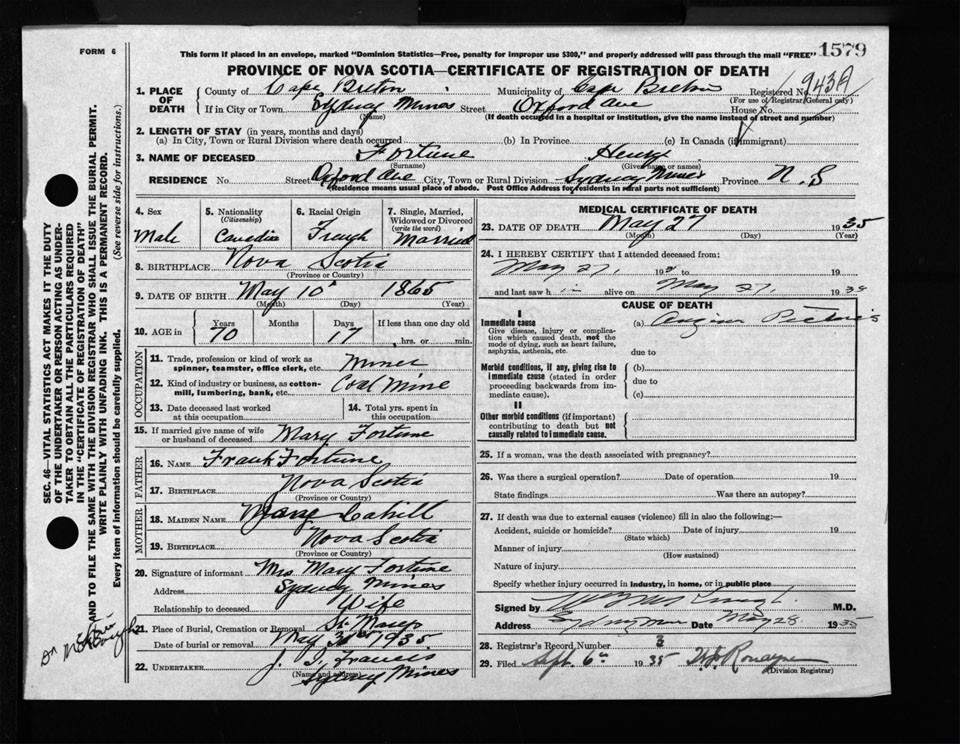 FORM 6
This form if placed in an envelope, marked "Dominion Statistics—Free, penalty for improper use $300," and properly addressed will pass through the mail "FREE" 1579
PROVINCE OF NOVA SCOTIA—CERTIFICATE OF REGISTRATION OF DEATH
1. PLACE OF DEATH
County of Cape Breton Municipality of Cape Breton Registered No.
(For use of Registrar General only)
If in City or Town Sydney Mines Street Oxford Ave House No.
(Name) (If death occurred in a hospital or institution, give the name instead of street and number)
2. LENGTH OF STAY (in years, months and days)
(a) In City, Town or Rural Division where death occurred (b) In Province (c) In Canada (if immigrant)
3. NAME OF DECEASED Fortune Henry
(Surname) (Given name or names)
RESIDENCE No. Street Oxford Ave City, Town or Rural Division Sydney Mines Province N.S
(Residence means usual place of abode. Post Office Address for residents in rural parts not sufficient)
4. Sex
Male
5. Nationality
(Citizenship)
Canadian
6. Racial Origin
French
7. Single, Married, Widowed or Divorced
(write the word)
Married
8. BIRTHPLACE Nova Scotia
(Province or Country)
9. DATE OF BIRTH May 10 1865
(Month) (Day) (Year)
10. AGE in Years Months Days If less than one day old
70 17 hrs. or min.
OCCUPATION
11. Trade, profession or kind of work as spinner, teamster, office clerk, etc. Miner
12. Kind of industry or business, as cotton-mill, lumbering, bank, etc. Coal Mine
13. Date deceased last worked at this occupation
14. Total yrs. spent in this occupation
15. If married give name of wife or husband of deceased Mary Fortune
FATHER
16. NAME Frank Fortune
17. BIRTHPLACE Nova Scotia
(Province or Country)
MOTHER
18. MAIDEN NAME Cahill
19. BIRTHPLACE Nova Scotia
(Province or Country)
20. Signature of informant Mrs Mary Fortune
Address Sydney Mines
Relationship to deceased Wife
21. Place of Burial, Cremation or Removal St. Marys
Date of burial or removal May 30 1935
22. UNDERTAKER J.
(Name and address)
Sydney Mines
MEDICAL CERTIFICATE OF DEATH
23. DATE OF DEATH May 27 1935
(Month) (Day) (Year)
24. I HEREBY CERTIFY that I attended deceased from:
May 27, 19 to 19
and last saw h im alive on May 27, 1935
CAUSE OF DEATH
I
Immediate cause
Give disease, injury or complication which caused death, not the mode of dying, such as heart failure, asphyxia, asthenia, etc.
(a) Angina Pectoris
due to
Morbid conditions, if any, giving rise to immediate cause (stated in order proceeding backwards from immediate cause).
(b)
due to
(c)
II
Other morbid conditions (if important) contributing to death but not causally related to immediate cause.
25. If a woman, was the death associated with pregnancy?
26. Was there a surgical operation? Date of operation 19
State findings Was there an autopsy?
27. If death was due to external causes (violence) fill in also the following:—
Accident, suicide or homicide? Date of injury 19
(State which)
Manner of injury
(How sustained)
Nature of injury
Specify whether injury occurred in industry, in home, or in public place
Signed by M.D.
Address Sydney Mines Date May 28 1935
28. Registrar's Record Number 3
29. Filed Sept. 6 1935
(Division Registrar)
SEC. 46—VITAL STATISTICS ACT MAKES IT THE DUTY
OF THE UNDERTAKER OR PERSON ACTING AS UNDER-
TAKER TO OBTAIN ALL THE PARTICULARS REQUIRED
IN THE "CERTIFICATE OF REGISTRATION OF DEATH"
AND TO FILE THE SAME WITH THE DIVISION REGISTRAR WHO SHALL ISSUE THE BURIAL PERMIT.
WRITE PLAINLY WITH UNFADING INK. THIS IS A PERMANENT RECORD.
Every item of information should be carefully supplied. (See reverse side for instructions.)